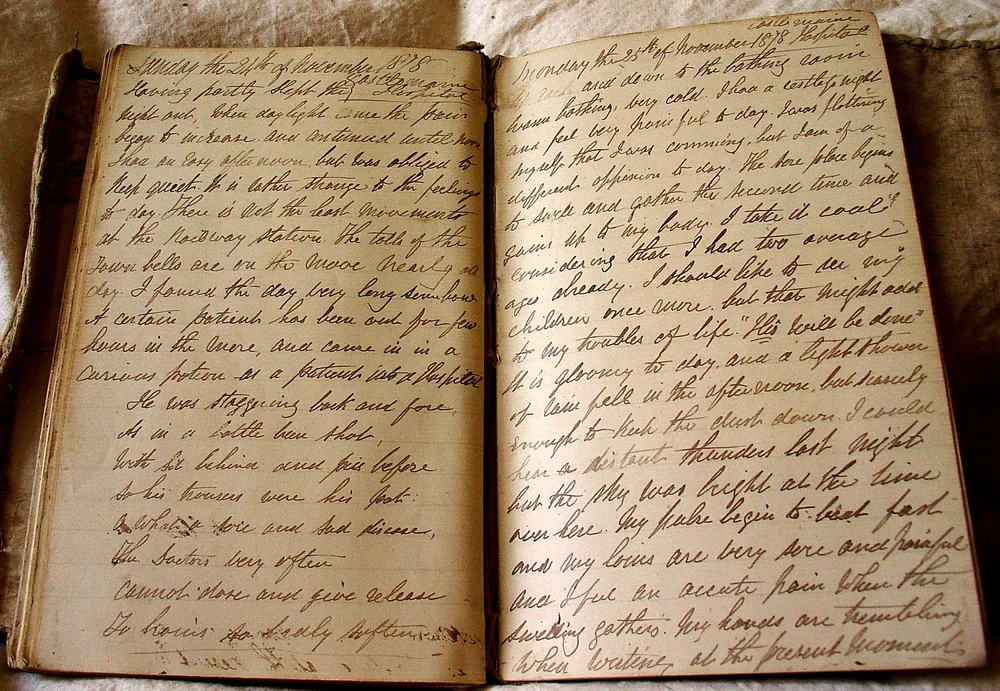 Sunday the 24th of November 1878
Castlemaine
Having partly slept the Hospital
night out, When daylight since the pain
began to increase and continued until noon
I had an easy afternoon, but was obliged to
keep quiet. It is rather strange to the feelings
to day. There is not the least movements
at the Railway station. The tolls of the
Town bells are on the move nearly all
day. I found the day very long somehow
A certain patient has been out for few
hours in the more, and came in in a
curious potion as a patient into a Hospital
He was staggering back and fore,
As in a battle been shot,
With sit behind and pin before
So his trousers were his pot:
What a sore and sad disease,
The Doctors very often
Cannot dose and give release
To brains so badly soften
Castlemaine
Monday the 25th of November 1878 Hospital
Up and and down to the bathing room
warm bathing, very cold. I had a restless night
and feel very painful to day. I was flattering
myself that I was comming, but I am of a
different oppinion to day. The sore place begins
to swell and gather the second time and
pains up to my body. I take it cool"
considering that I had two average
ages already. I should like to see my
children once more, but that might add
to my troubles of life. "His will be done"
It is gloomy to day, and a light shower
of rain fell in the afternoon, but scarcely
enough to keep the dust down. I could
hear a distant thunders last night
but the sky was bright at the time
over here. My pulse begin to beat fast
and my loins are very sore and painful
and I feel an accute pain when the
swelling gathers. My hands are trembling
when writing at the present moment